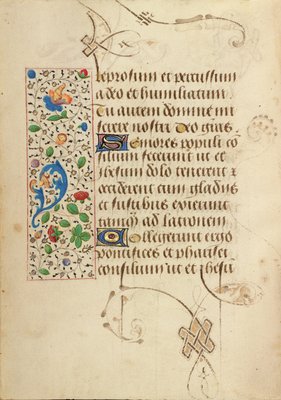 leprosum et percussum
a deo et humiliatum
Tu autem domine mi
serere nostri Deo gras
Seniores populi co
silium fecerunt ut
ihesum dolo tenerent
occiderent cum gladiis
et fustibus exierunt
tamq ad latronem
Collegerunt ergo
pontifices et pharisei
consilium ut et ihesu